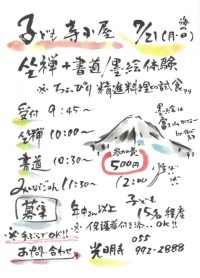 子ども寺小屋 7/21(月・祝) 海の日
坐禅+書道/墨絵体験
※ちょっぴり精進料理の試食アリ
受付 9:45〜
坐禅 10:00〜
書道 10:30〜
みんなでごはん 11:30〜
12:00
墨絵は
富士山
参加費
500円
募集
年中さん以上
子ども
15名程度
※手ぶらでOK!!
※保護者付き添いOK!!
お問い合わせ
光明寺
055
992-2888